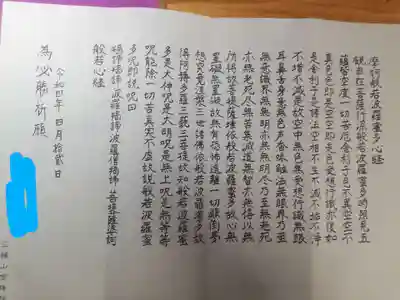 摩訶般若波羅蜜多心経
観自在菩薩行深般若波羅蜜多時照見五
蘊皆空度一切苦厄舎利子色不異空空不
異色色即是空空即是色受想行識亦復如
是舎利子是諸法空相不生不滅不垢不浄
不増不減是故空中無色無受想行識無眼
耳鼻舌身意無色声香味触法無眼界乃至
無意識界無無明亦無無明尽乃至無老死
亦無老死尽無苦集滅道無智亦無得以無
所得故菩提薩埵依般若波羅蜜多故心無
罣礙無罣礙故無有恐怖遠離一切顛倒夢
想究竟涅槃三世諸仏依般若波羅蜜多故
得阿耨多羅三藐三菩提故知般若波羅蜜
多是大神呪是大明呪是無上呪是無等等
呪能除一切苦真実不虚故説般若波羅蜜
多呪即説呪曰
羯諦羯諦波羅羯諦波羅僧羯諦菩提薩婆訶
般若心経
令和四年四月拾弐日
為必勝祈願